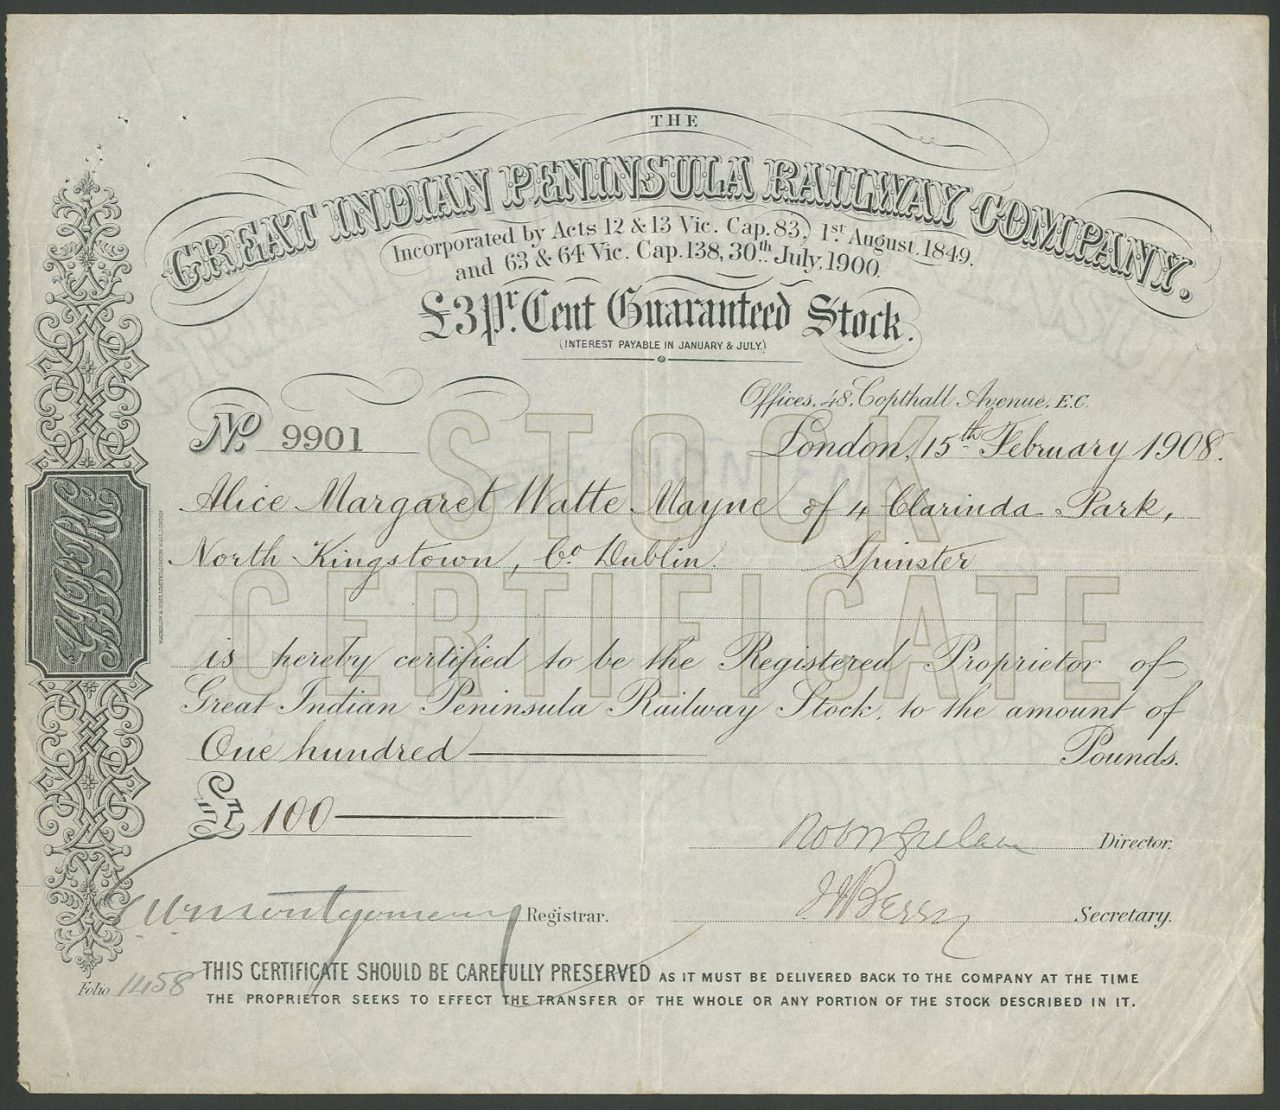 THE
GREAT INDIAN PENINSULA RAILWAY COMPANY.
Incorporated by Acts 12 & 13 Vic. Cap. 83, 1st August, 1849.
and 63 & 64 Vic. Cap. 138, 30th July, 1900.
£3 pr. Cent Guaranteed Stock.
(INTEREST PAYABLE IN JANUARY & JULY.)
Offices, 48, Copthall Avenue, E.C.
No. 9901
London, 15th February 1908.
STOCK
Alice Margaret Watte Mayne of 4 Clarinda Park,
North Kingstown, Co Dublin. Spinster
CERTIFICATE
is hereby certified to be the Registered Proprietor of
Great Indian Peninsula Railway Stock, to the amount of
One hundred Pounds.
£ 100
Director.
Montgomery Registrar.
J Berry Secretary.
Folio 1458
THIS CERTIFICATE SHOULD BE CAREFULLY PRESERVED AS IT MUST BE DELIVERED BACK TO THE COMPANY AT THE TIME
THE PROPRIETOR SEEKS TO EFFECT THE TRANSFER OF THE WHOLE OR ANY PORTION OF THE STOCK DESCRIBED IN IT.
GIPRC